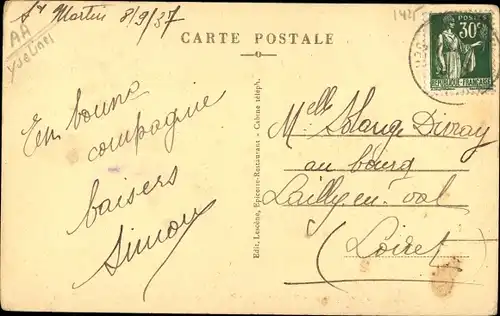 St Martin 8/9/37
AA
Yvelines
CARTE POSTALE
POSTES
30c
REPUBLIQUE FRANÇAISE
En bonne
compagnie
baisers
Simon
Edit. Lescène, Epicerie-Restaurant - Cabine téléph.
Melle Solange Divray
au bourg
Lailly en val
(Loiret)